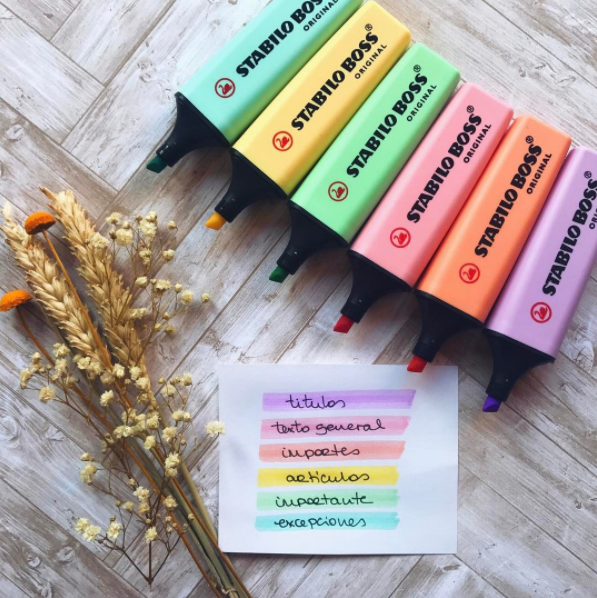 STABILO BOSS
ORIGINAL
STABILO BOSS®
ORIGINAL
STABILO BOSS®
ORIGINAL
STABILO BOSS®
ORIGINAL
STABILO BOSS®
ORIGINAL
STABILO BOSS®
ORIGINAL
titulos
texto general
importes
articulos
importante
excepciones